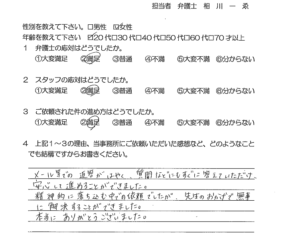 担当者 弁護士 稲川 一
性別を教えて下さい。 □男性 ☑女性
年齢を教えて下さい ☑20代□30代□40代□50代□60代□70才以上
1 弁護士の応対はどうでしたか。
①大変満足 ②満足 ③普通 ④不満 ⑤大変不満 ⑥分からない
2 スタッフの応対はどうでしたか。
①大変満足 ②満足 ③普通 ④不満 ⑤大変不満 ⑥分からない
3 ご依頼された件の進め方はどうでしたか。
①大変満足 ②満足 ③普通 ④不満 ⑤大変不満 ⑥分からない
4 上記1～3の理由、当事務所にご依頼いただいた感想など、どのようなことでも結構ですからお書きください。
メール等での返答がはやく、質問などにもすぐに答えていただけ
安心して進めることができました。
精神的に落ち込む中での依頼でしたが、先生のおかげで無事
に解決することができました。
本当にありがとうございました。